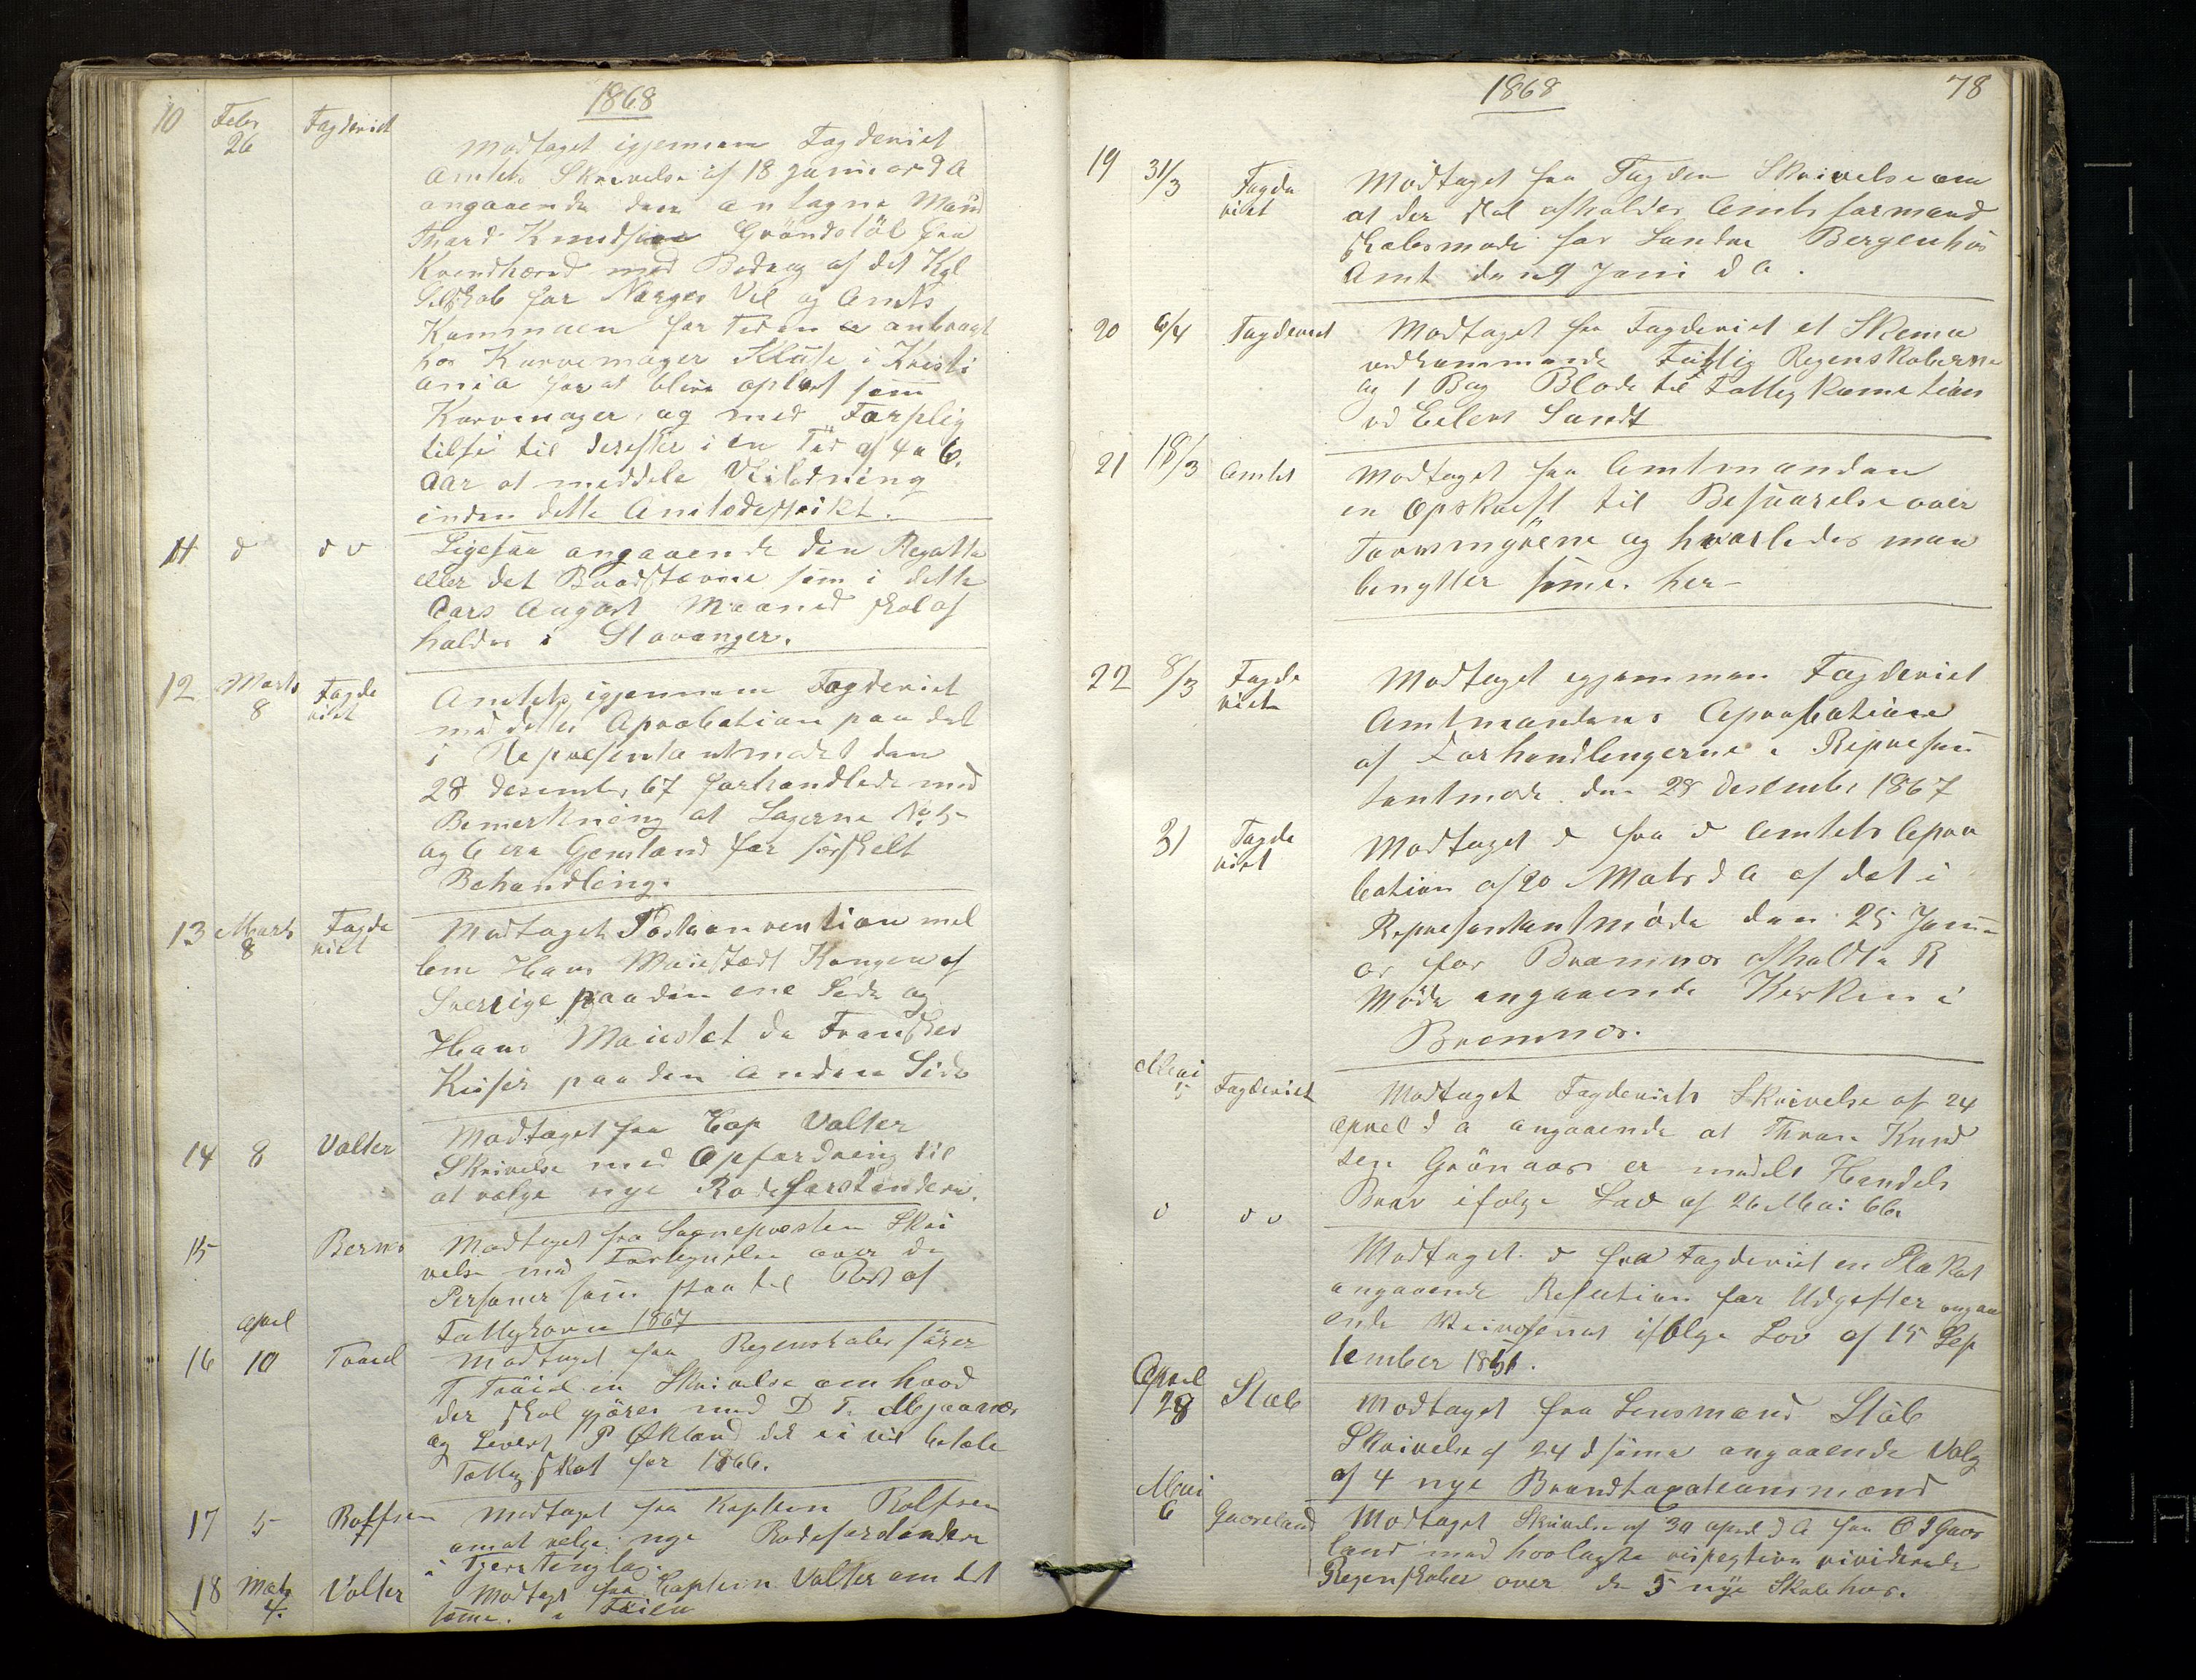 1868
10 Febr 26 Fogderiet
Modtaget igjennem Fogderiet
Amtets Skrivelse af 18 Januar d A
angaaende den antagne Mand
Thord Knudsen Gröndstöl fra
Kvindherred med Bedrag af det Kgl
Selskab for Norges Vel og Amts
Kommunen for Tiden er anbragt
hos Kurvemager Kluse i Kristi
ania for at blive oplært som
Kurvmager, og med Forplig
telse til derefter i en Tid af 4 a 6
Aar at meddele Veiledning
inden dette Amtsdestrikt.
11 d d d Ligesaa angaaende den Regatta
eller det Baadstævne som i dette
Aars August Maaned skal af
holdes i Stavanger.
12 Marts 8 Fogde riet
Amtets igjennem Fogderiet
meddelte Aprobation paa det
i Representantmødet den
28 desember 67 forhandlede med
Bemerkning at Sagerne No 5
og 6 era Gjenstand for særskelt
Behandling.
13 Marts 8 Fogde riet
Modtaget Postkonvention mel
lem Hans Maiestædt Kongen af
Sverrige paa den ene Side og
Hans Maiestet de Franskes
Keiser paa den anden Side
14 8 Valter
Modtaget fra Cap Valter
Skrivelse med Opfordring til
at vælge nye Rodeforstandere.
15
Modtaget fra Sognepresten Skri
velse med Fortegnelse over de
Personer som staa til Rest af
Fattigkorn 1867
16 April 10
Modtaget fra Regenskabsförer
T. en Skrivelse om hvad
der skal gjöres med D T. Mjaanæs
og Severt P Økland der ei vil betale
Fattigskat for 1866.
17 5 Rolfsen Modtaget fra Kaptein Rolfsen
om at velge nye Rodeforstandere
i
18 Mats 4. Valter Modtaget fra Kaptein Valter om det
samme i
1868 78
19 31/3 Fogde riet
Modtaget fra Fogden Skrivelse om
at der skal afholdes Amtsformand
skabsmøde for Søndre Bergenhus
Amt den 9 Juni d A.
20 6/4 Fogderiet Modtaget fra Fogderiet et Skema
vedkommende Fattig Regenskaberne
og 1 Bog Blade til Fattigkometion
ved Eilert Sundt
21 18/3 Amtet Modtaget fra Amtmanden
en Opskrift til Besvarelse over
Torvmyrene og hvorledes man
benytter somme her
22 8/3 Fogde riet
Modtaget egjemmen Fogderiet
Amtmandens Aprobatione
af Forhandlingerne i Represen
tantmøde den 28 Desember 1867
31 Fogde riet
Modtaget d fra d Amtets Apro
bation af 20 Mats d A af det i
Representantmöde den 25 Janu
ar for Bremnes afholdte R
Möde angaaende Kirken i
Bremnes.
Mai 5 Fogderiet Modtaget Fogderiets Skrivelse af 24
April d a angaaende at Thron Knud
sen Grönaas er medelt Handels
Brev ifølge Lov af 26 Mai 66.
d d d
Modtaget d fra Fogderiet en Plakat
angaaende Refution for Udgifter angaa
ende Veivæsenet ifölge Lov af 15 Sep
tember 1851.
April 28 Stæle Modtaget fra Lensmand Støle
Skrivelse af 24 d same angaaende Valg
af 4 nye Brandtaxationsmænd
Mai 6 Gaasland Modtaget Skrivelse af 30 April d A fra O J Gaas
land med hoslagte respegtive reviderede
Regenskaber over de 5 nye Skolehus.